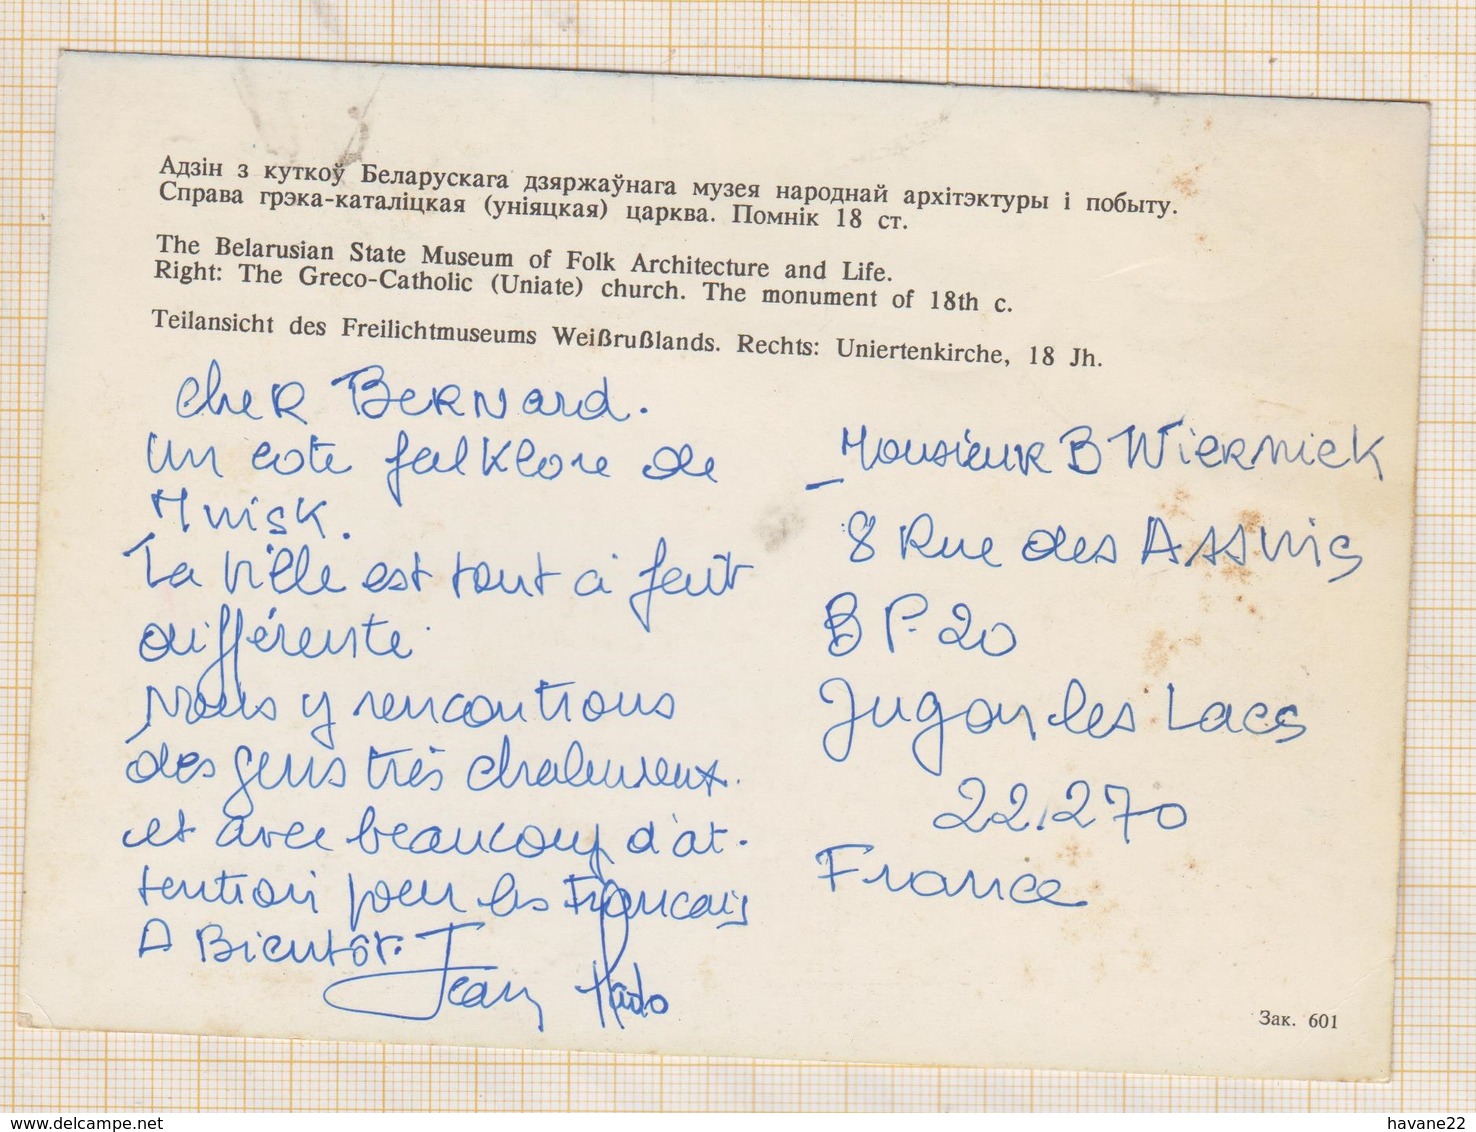 Адзін з куткоў Беларускага дзяржаўнага музея народнай архітэктуры і побыту.
Справа грэка-каталіцкая (уніяцкая) царква. Помнік 18 ст.
The Belarusian State Museum of Folk Architecture and Life.
Right: The Greco-Catholic (Uniate) church. The monument of 18th c.
Teilansicht des Freilichtmuseums Weißrußlands. Rechts: Uniertenkirche, 18 Jh.
Cher Bernard.
Un coté falklore de
Mnisk.
La ville est tout à fait
différente.
Nous y rencontrons
des gens très chaleureux.
et avec beaucoup d'at-
tention pour les Français
A Bientôt. Jean
Monsieur B Wiernick
8 Rue des
B P. 20
Jugon les Lacs
22.270
France
Зак. 601
delcampe.net
havane22